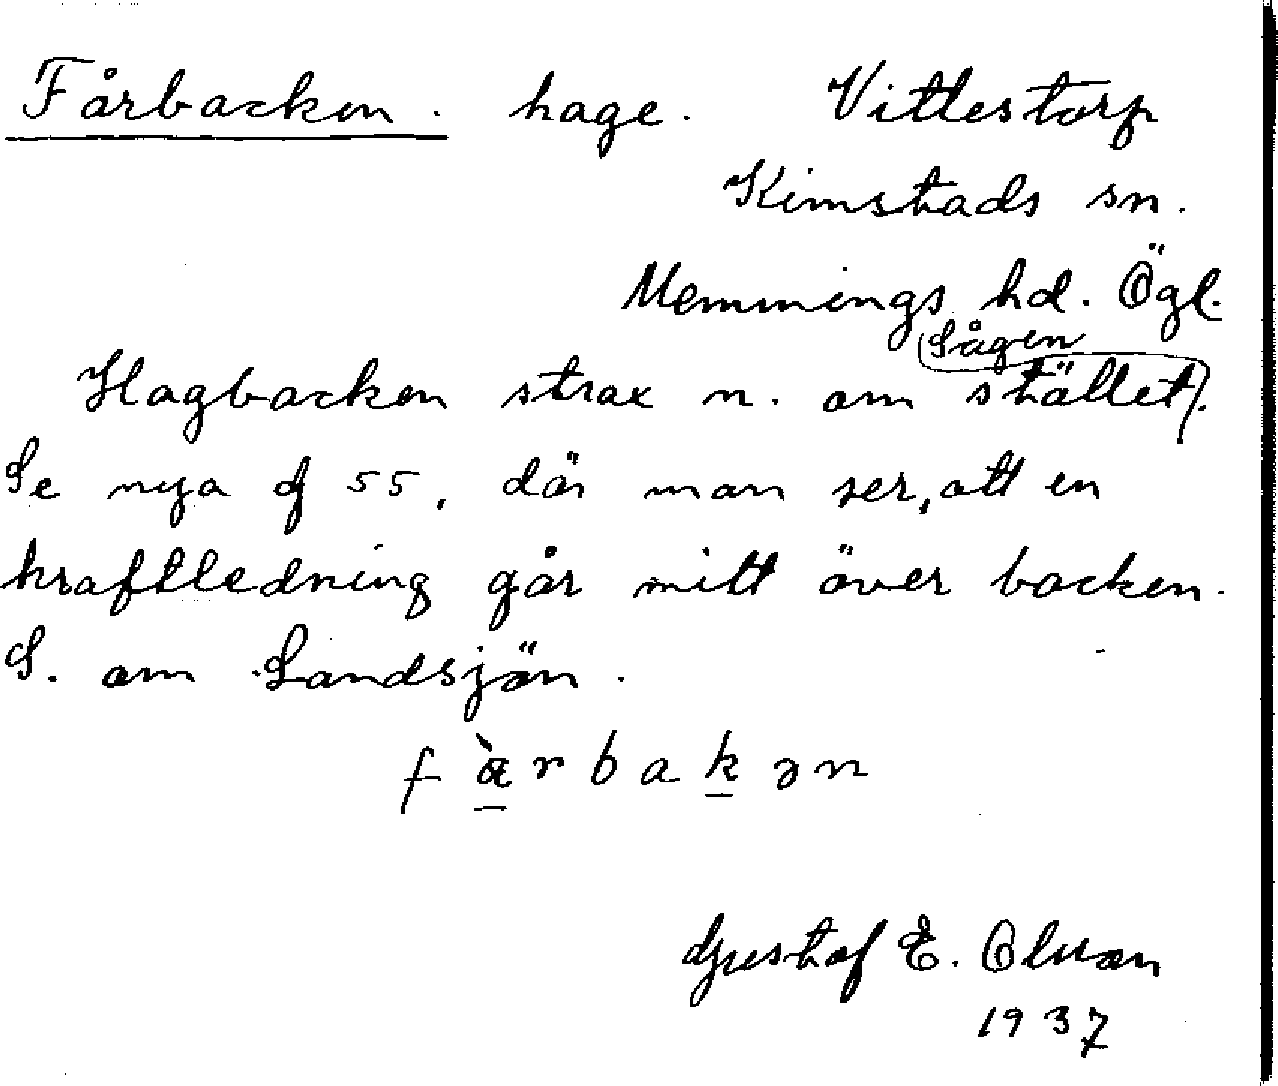 Fårbacken. hage. Vittestorp
Kimstads sn.
Memmings hd. Ögl.
Sågen
Hagbacken strax n. om stället.
Se nya ɖ 55, där man ser, att en
kraftledning går mitt över backen.
S. om Landsjön.
fàrbakən
Gustaf E. Olsson
1937